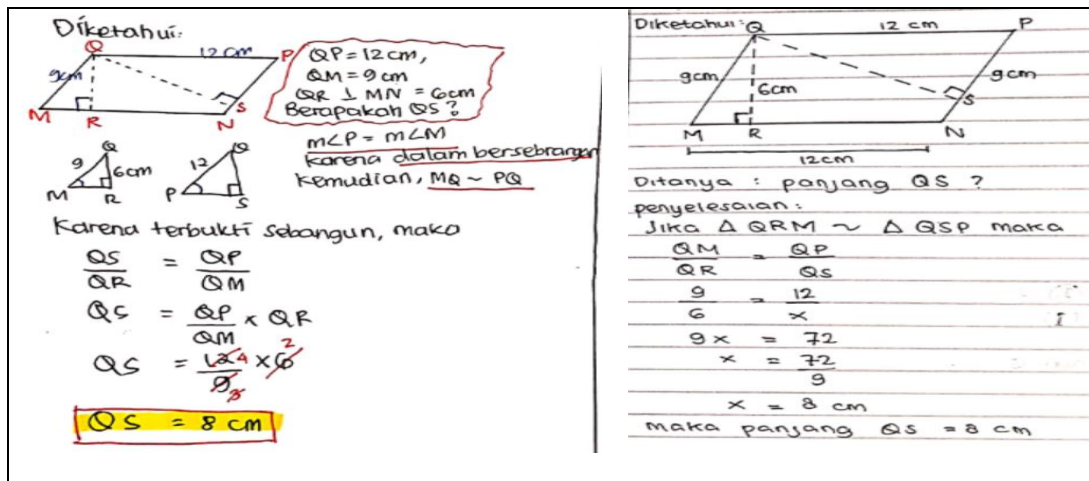 Diketahui:
Q 12 cm P
9cm
M R N S
QP = 12 cm,
QM = 9 cm
QR ⊥ MN = 6cm
Berapakah QS ?
m∠P = m∠M
karena dalam bersebrangan
kemudian, MQ ~ PQ
Q Q
9 6cm 12
M R P S
Karena terbukti sebangun, maka
QS/QR = QP/QM
QS = QP/QM × QR
QS = 12/9 × 6
4 2
3
QS = 8 cm
Diketahui: Q 12 cm P
9cm 6cm 9cm
S
M R N
12cm
Ditanya : panjang QS ?
penyelesaian :
Jika Δ QRM ~ Δ QSP maka
QM/QR = QP/QS
9/6 = 12/x
9x = 72
x = 72/9
x = 8 cm
maka panjang QS = 8 cm